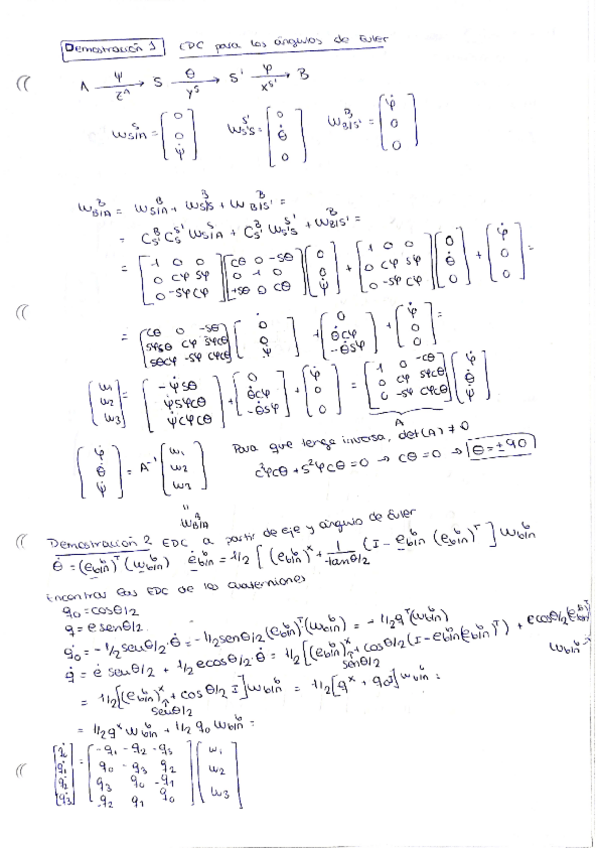 Demostración 1 EDC para los ángulos de Euler
A —ψ/z^A→ S —θ/y^S→ S' —φ/x^S'→ B
ω^S_S/A = [0; 0; ψ̇] ω^S'_S'S = [0; θ̇; 0] ω^B_B/S' = [φ̇; 0; 0]
ω^B_B/A = ω^B_S/A + ω^B_S'S + ω^B_B/S' =
= C^B_S' C^S'_S ω^S_S/A + C^B_S' ω^S'_S'S + ω^B_B/S' =
= [1 0 0; 0 cφ sφ; 0 -sφ cφ] [cθ 0 -sθ; 0 1 0; +sθ 0 cθ] [0; 0; ψ̇] + [1 0 0; 0 cφ sφ; 0 -sφ cφ] [0; θ̇; 0] + [φ̇; 0; 0] =
= [cθ 0 -sθ; sφsθ cφ sφcθ; sθcφ -sφ cφcθ] [0; 0; ψ̇] + [0; θ̇cφ; -θ̇sφ] + [φ̇; 0; 0] =
[ω1; ω2; ω3] = [-ψ̇sθ; ψ̇sφcθ; ψ̇cφcθ] + [0; θ̇cφ; -θ̇sφ] + [φ̇; 0; 0] = [1 0 -cθ; 0 cφ sφcθ; 0 -sφ cφcθ] [φ̇; θ̇; ψ̇]
A
[φ̇; θ̇; ψ̇] = A⁻¹ [ω1; ω2; ω3] Para que tenga inversa, det(A) ≠ 0
c²φcθ + s²φcθ = 0 → cθ = 0 → θ = ±90
"
ω_B/A
Demostración 2 EDC a partir de eje y ángulo de Euler
θ̇ = (e^b_b/n)^T (ω^b_b/n) ė^b_b/n = 1/2 [(e^b_b/n)^x + 1/tanθ/2 (I - e^b_b/n (e^b_b/n)^T] ω^b_b/n
Encontrar las EDC de los cuaterniones
q0 = cosθ/2
q = e senθ/2
q̇0 = -1/2 senθ/2 · θ̇ = -1/2 senθ/2 (e^b_b/n)^T (ω^b_b/n) = -1/2 q^T (ω^b_b/n)
q̇ = ė senθ/2 + 1/2 e cosθ/2 · θ̇ = 1/2 [(e^b_b/n)^x senθ/2 + cosθ/2 (I - e^b_b/n (e^b_b/n)^T) + e cosθ/2 (e^b_b/n)^T ω^b_b/n
= 1/2 [(e^b_b/n)^x senθ/2 + cosθ/2 I] ω^b_b/n = 1/2 [q^x + q0 I] ω^b_b/n =
= 1/2 q^x ω^b_b/n + 1/2 q0 ω^b_b/n =
[q̇; q̇1; q̇2; q̇3] = [-q1 -q2 -q3; q0 -q3 q2; q3 q0 -q1; -q2 q1 q0] [ω1; ω2; ω3]